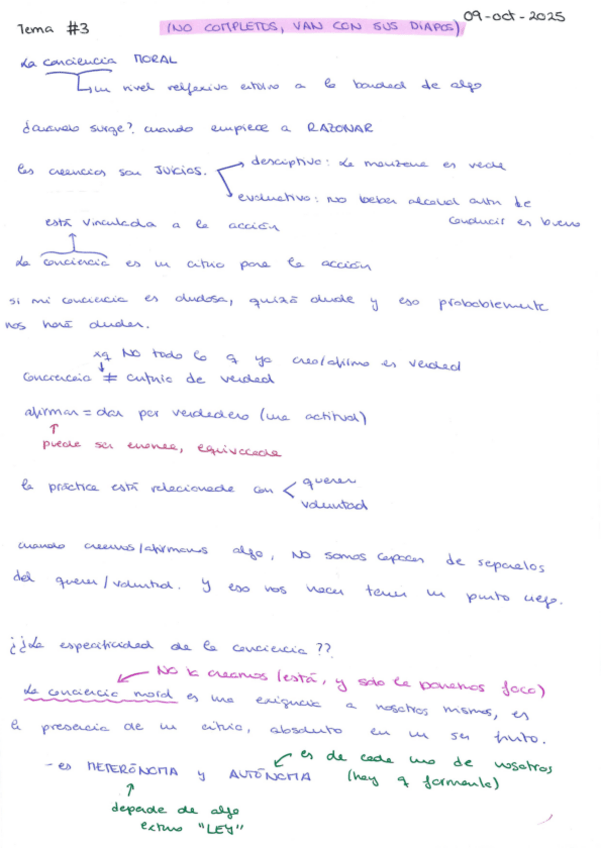 09-oct-2025
Tema #3 (NO COMPLETOS, VAN CON SUS DIAPOS)
La conciencia MORAL
un nivel reflexivo entorno a la bondad de algo
¿cuando surge? cuando empiece a RAZONAR
las creencias son JUICIOS.
descriptivo: La manzana es verde
evaluativo: no beber alcohol antes de
conducir es bueno
está vinculada a la acción
La conciencia es un criterio para la acción
si mi conciencia es dudosa, quizá dude y eso probablemente
nos hará dudar.
xq NO todo lo q yo creo/afirmo es verdad
conciencia ≠ criterio de verdad
afirmar = dar por verdadero (una actitud)
puede ser erronea, equivocada
la práctica está relacionada con
querer
voluntad
cuando creemos/afirmamos algo, NO somos capaces de separarlos
del querer/voluntad. y eso nos hace tener un punto ciego.
¿¿La especificidad de la conciencia??
NO la creamos (está, y solo le ponemos foco)
La conciencia moral es una exigencia a nosotros mismos, es
la presencia de un criterio, absoluto en un ser finito.
es de cada uno de nosotros
- es HETERÓNOMA y AUTÓNOMA (hay q formarla)
depende de algo
externo "LEY"